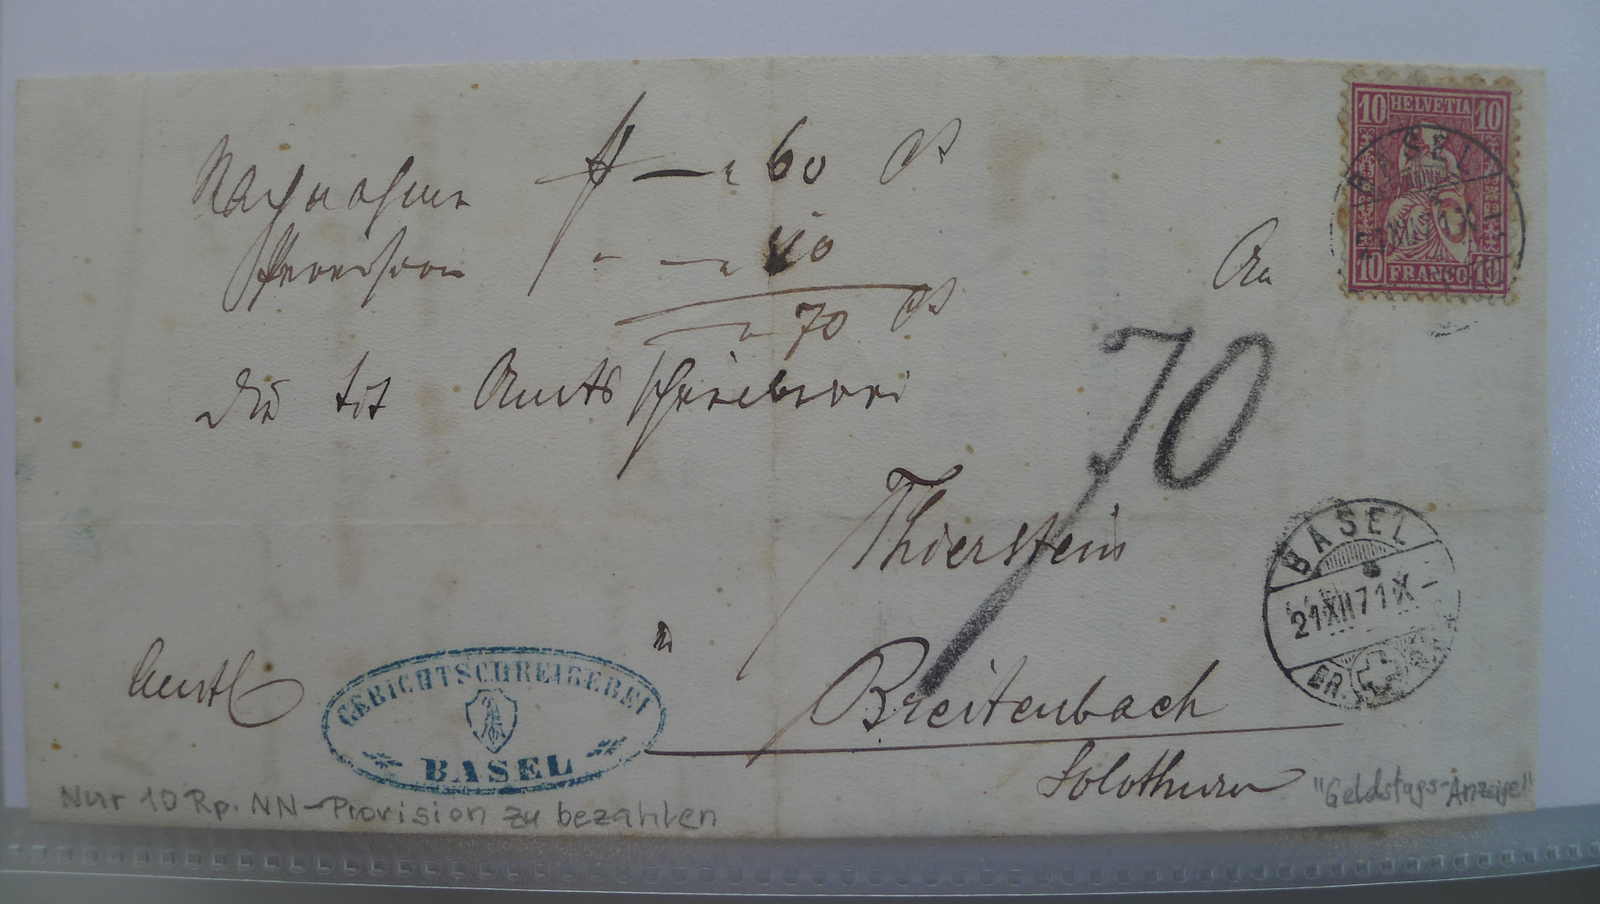 Nachnahme fr — „ 60 Ct
Provision „ — „ 10
— „ 70 Ct
An
die tit Amtsschreiberei
70
Thierstein
in
Breitenbach
Solothurn
Amtl
GERICHTSCHREIBEREI
BASEL
10 HELVETIA 10
10 FRANCO 10
BASEL
BASEL
21 XII 71 X
BR.
Nur 10 Rp. NN-Provision zu bezahlen
"Geldstags-Anzeige"